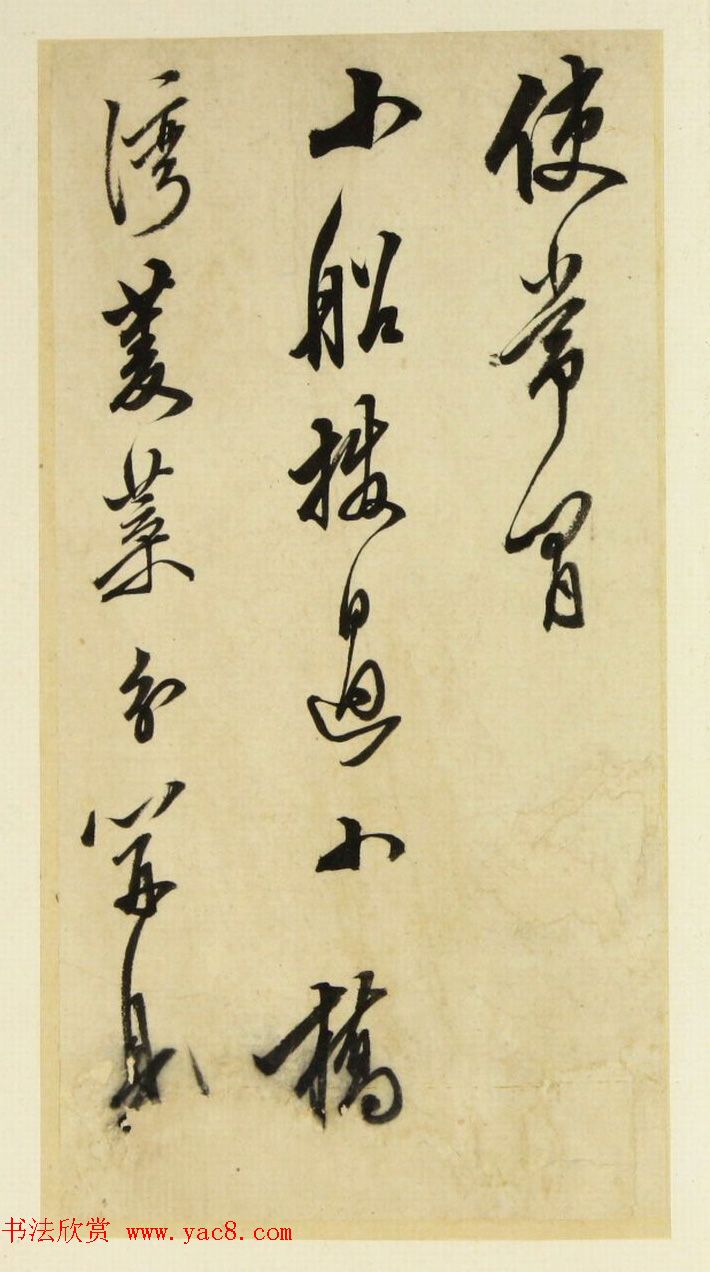 使常閒
小船過小橋
灣菱葉分開見
书法欣赏 www.yac8.com